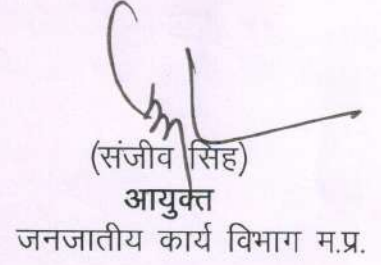 (संजीव सिंह)
आयुक्त
जनजातीय कार्य विभाग म.प्र.